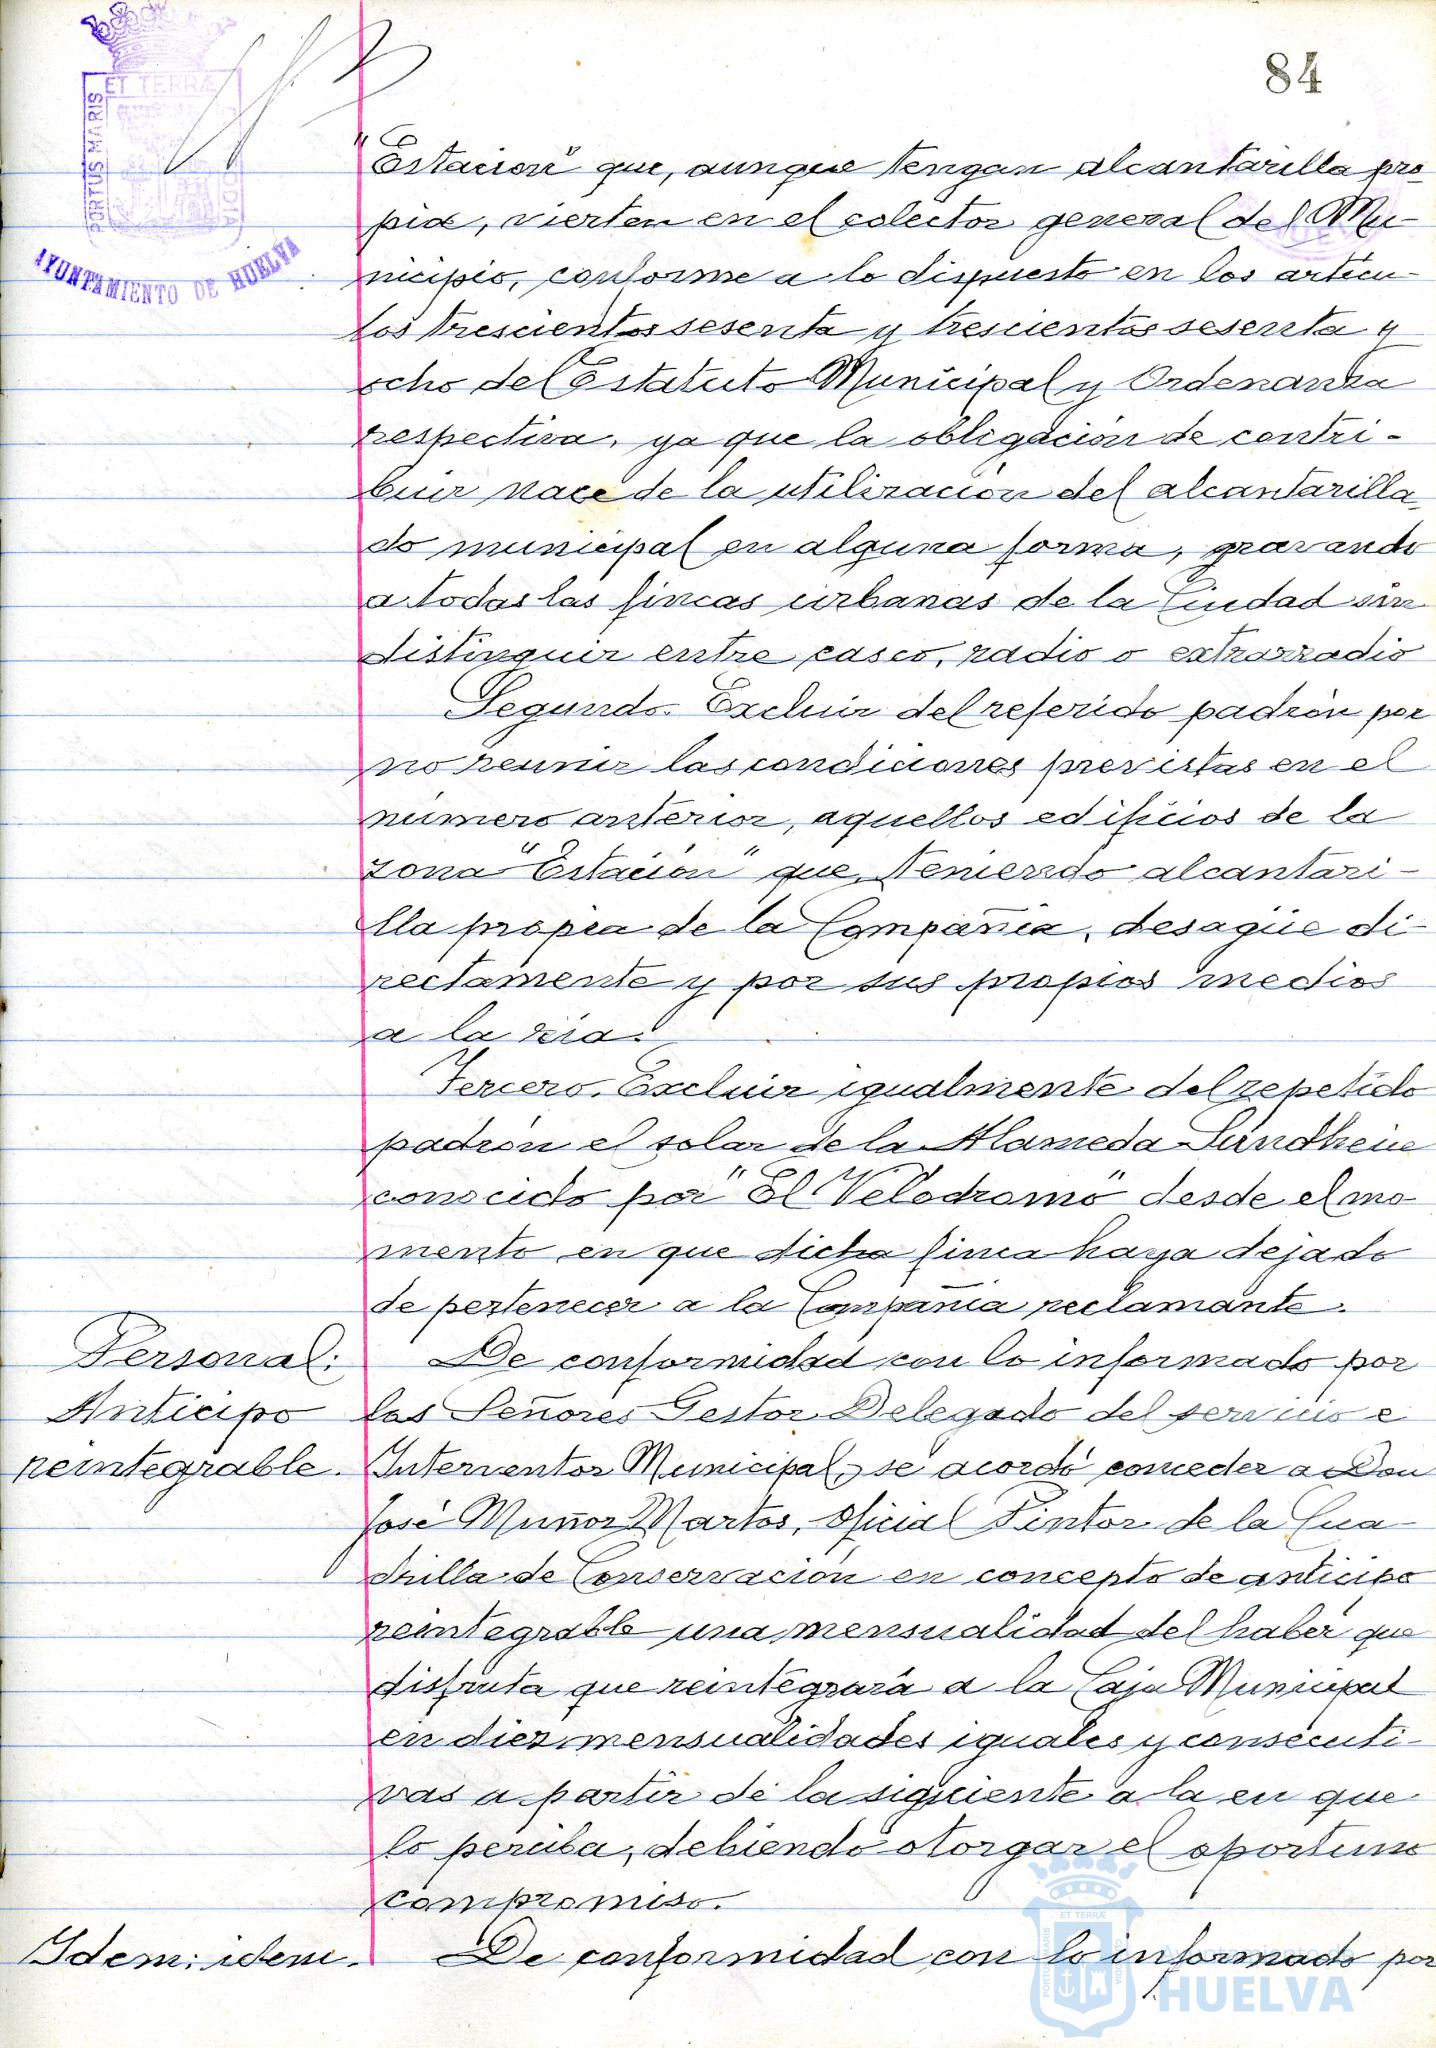 84
ET TERRÆ
PORTUS MARIS
AYUNTAMIENTO DE HUELVA
"Estación" que, aunque tengan alcantarilla pro-
pia, vierten en el colector general del Mu-
nicipio, conforme a lo dispuesto en los artícu-
los trescientos sesenta y trescientos sesenta y
ocho del Estatuto Municipal y Ordenanza
respectiva, ya que la obligación de contri-
buir nace de la utilización del alcantarilla-
do municipal en alguna forma, gravando
a todas las fincas urbanas de la Ciudad sin
distinguir entre casco, radio o extrarradio
Segundo. Excluir del referido padrón por
no reunir las condiciones previstas en el
número anterior, aquellos edificios de la
zona "Estación" que, teniendo alcantari-
lla propia de la Compañía, desagüe di-
rectamente y por sus propios medios
a la ría.
Tercero. Excluir igualmente del repetido
padrón el solar de la Alameda Sundheim
conocido por "El Velodromo" desde el mo-
mento en que dicha finca haya dejado
de pertenecer a la Compañía reclamante.
Personal:
Anticipo
reintegrable.
De conformidad con lo informado por
los Señores Gestor Delegado del servicio e
Interventor Municipal, se acordó conceder a Don
José Muñoz Martos, Oficial Pintor de la Cua-
drilla de Conservación en concepto de anticipo
reintegrable una mensualidad del haber que
disfruta que reintegrará a la Caja Municipal
en diez mensualidades iguales y consecuti-
vas a partir de la siguiente a la en que
lo perciba, debiendo otorgar el oportuno
compromiso.
Idem: idem.
De conformidad con lo informado por
HUELVA